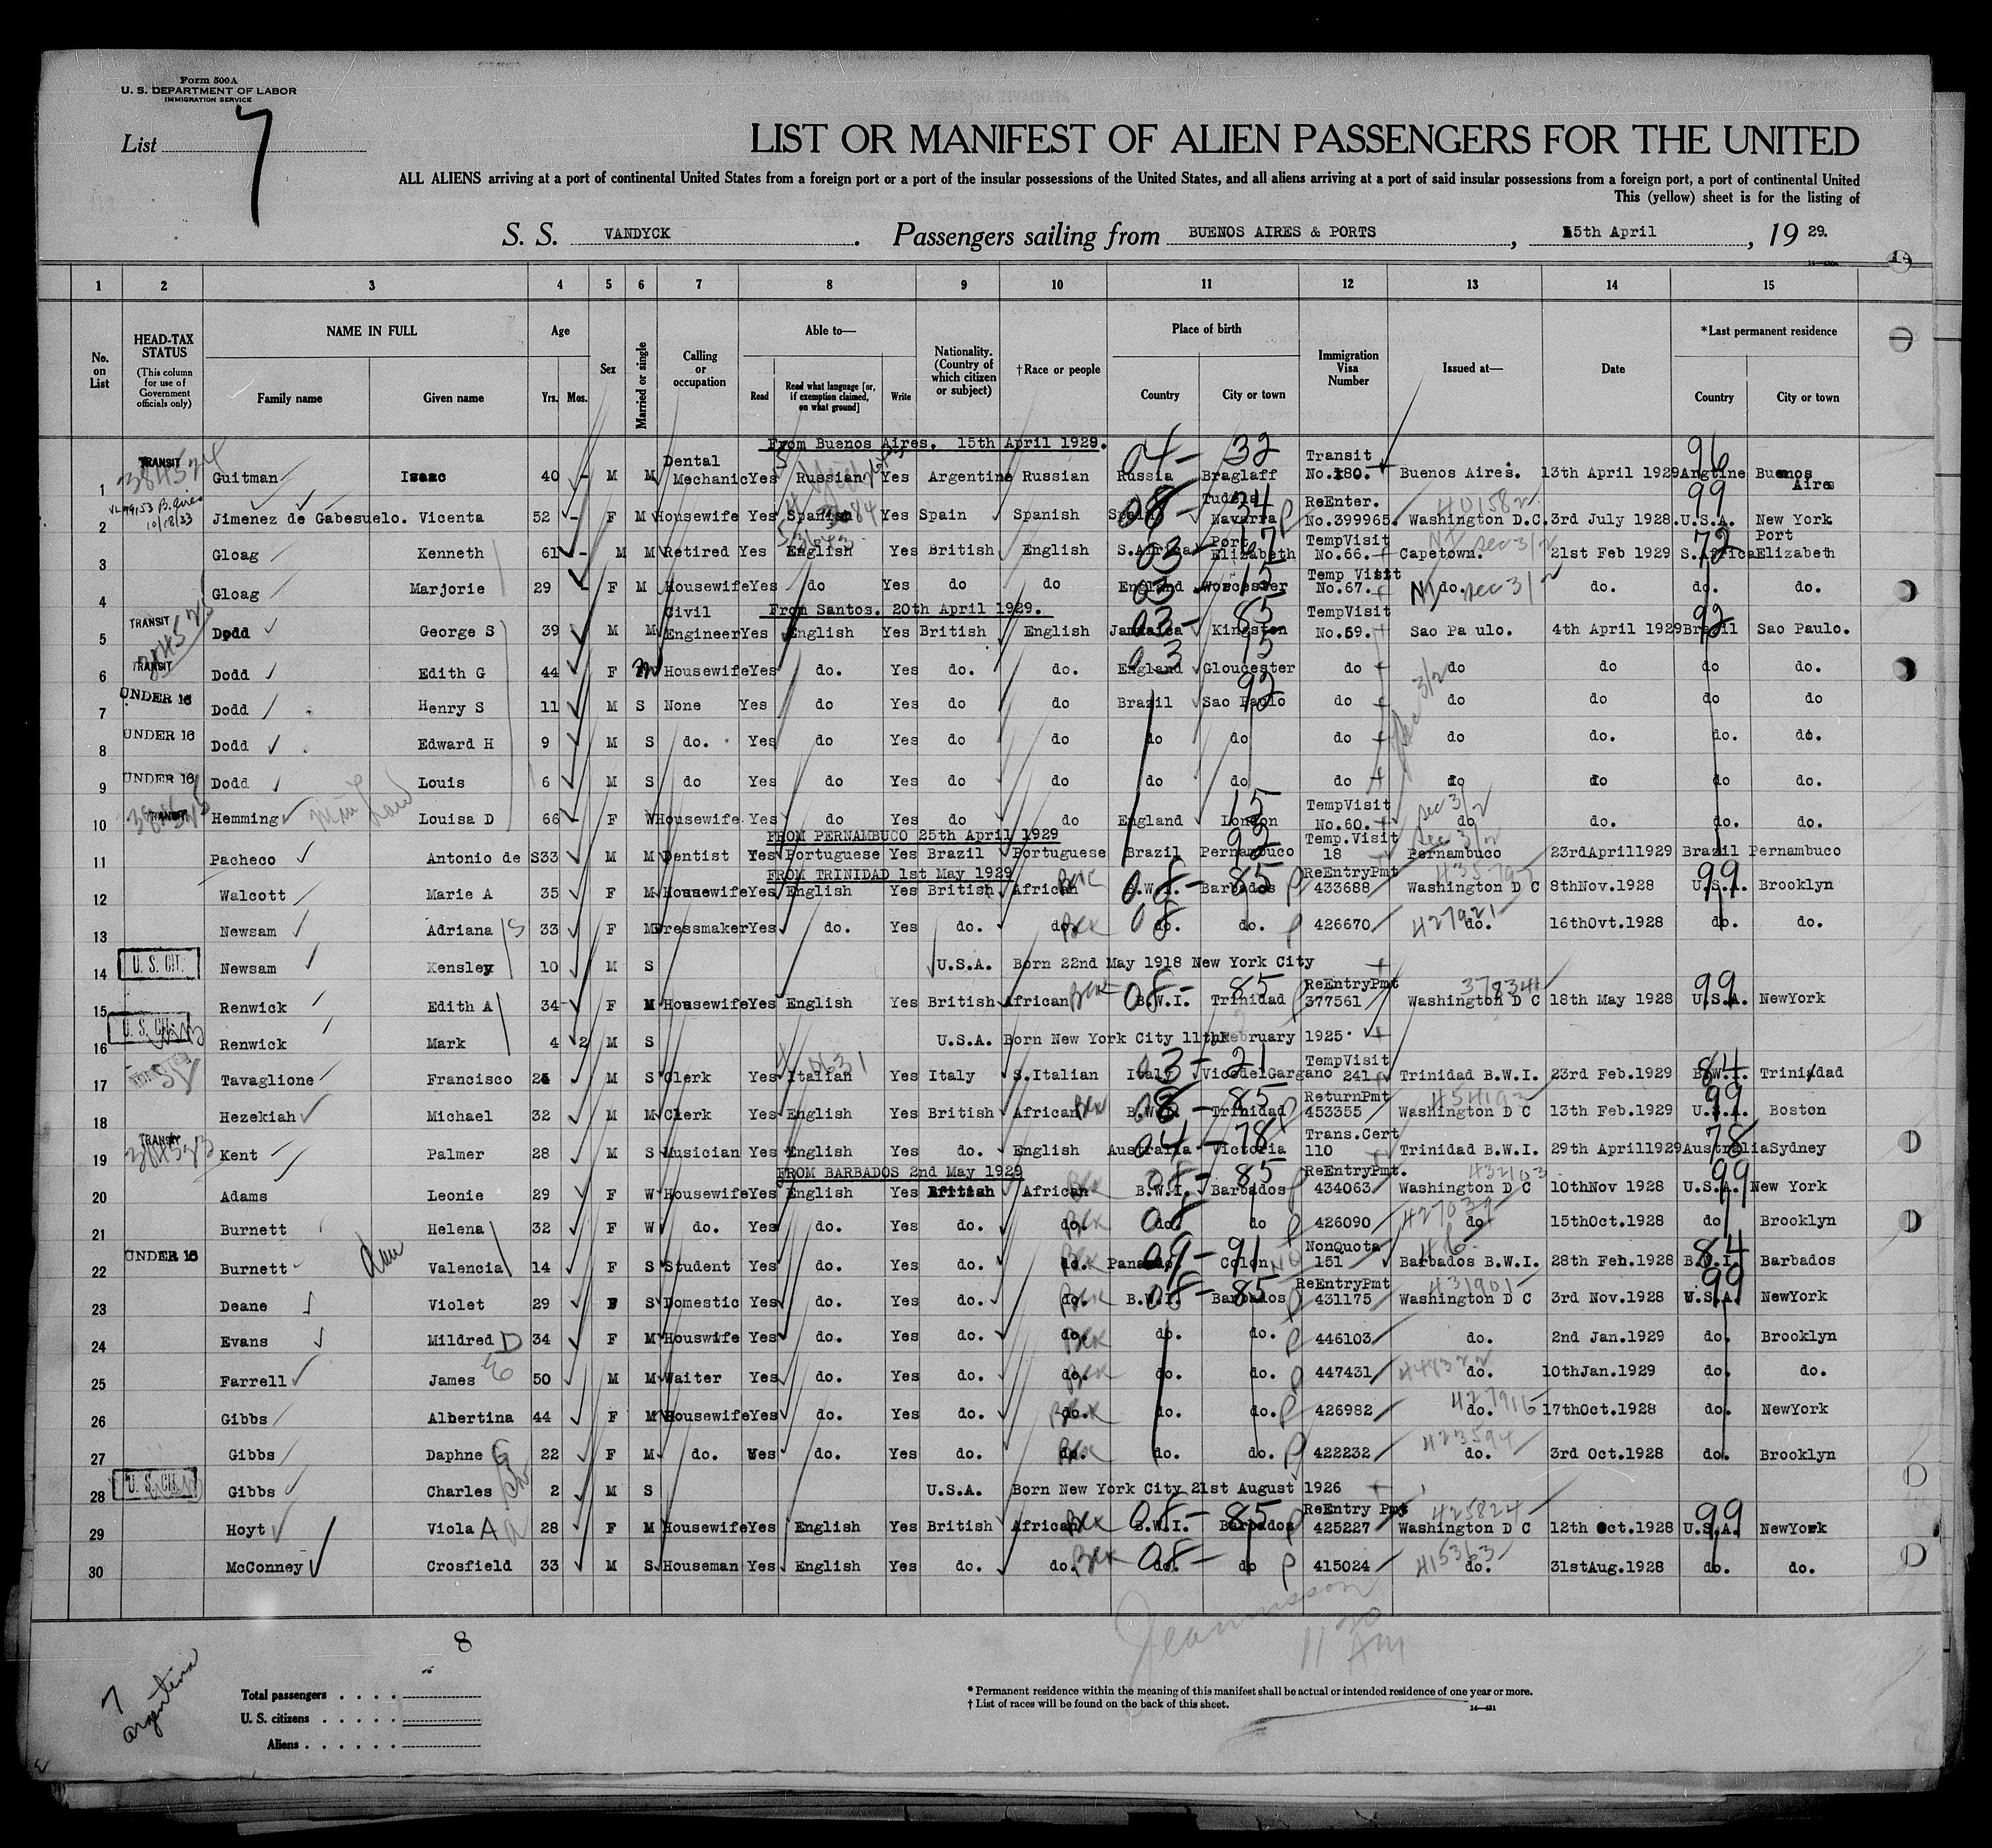 Form 500A
U. S. DEPARTMENT OF LABOR
IMMIGRATION SERVICE
List 7
LIST OR MANIFEST OF ALIEN PASSENGERS FOR THE UNITED
ALL ALIENS arriving at a port of continental United States from a foreign port or a port of the insular possessions of the United States, and all aliens arriving at a port of said insular possessions from a foreign port, a port of continental United
This (yellow) sheet is for the listing of
S. S. VANDYCK. Passengers sailing from BUENOS AIRES & PORTS, 15th April, 19 29.
1 2 3 4 5 6 7 8 9 10 11 12 13 14 15
No. on List
HEAD-TAX STATUS (This column for use of Government officials only)
NAME IN FULL Family name Given name
Age Yrs. Mos.
Sex
Married or single
Calling or occupation
Able to— Read Read what language [or, if exemption claimed, on what ground] Write
Nationality. (Country of which citizen or subject)
†Race or people
Place of birth Country City or town
Immigration Visa Number
Issued at—
Date
*Last permanent residence Country City or town
From Buenos Aires. 15th April 1929.
1 TRANSIT Guitman Isaac 40 - M M Dental Mechanic Yes Russian Yes Argentine Russian Russia Braglaff 04 - 32 Transit No.180. Buenos Aires. 13th April 1929 Angtine Buenos Aires 96
2 Jimenez de Gabesuelo. Vicenta 52 - F M Housewife Yes Spanish Yes Spain Spanish Spain Tudela Navarra 08 - 34 ReEnter. No.399965. Washington D.C. 401582 3rd July 1928. U.S.A. New York 99
3 Gloag Kenneth 61 - M M Retired Yes English Yes British English S.Africa Port Elizabeth 03 - 67 TempVisit No.66. Capetown. 21st Feb 1929 S.Africa Port Elizabeth 72
4 Gloag Marjorie 29 F M Housewife Yes do Yes do do England Worcester 03 15 Temp Visit No.67. do. sec 3/2 do. do. do.
From Santos. 20th April 1929.
5 TRANSIT Dodd George S 39 M M Civil Engineer Yes English Yes British English Jamaica Kingston 03 - 85 TempVisit No.59. Sao Pa ulo. 4th April 1929 Brazil Sao Paulo. 92
6 TRANSIT Dodd Edith G 44 F M Housewife Yes do. Yes do. do England Gloucester 03 15 do do do do do.
7 UNDER 16 Dodd Henry S 11 M S None Yes do Yes do do Brazil Sao Paolo 92 do do do do do
8 UNDER 16 Dodd Edward H 9 M S do. Yes do Yes do do do do do do do. do. do.
9 UNDER 16 Dodd Louis 6 M S do Yes do Yes do do do do do do do do do.
10 TRANSIT Hemming Louisa D 66 - F W Housewife Yes do Yes do do England London 15 TempVisit No.60. do sec 3/2 do. do. do.
FROM PERNAMBUCO 25th April 1929
11 Pacheco Antonio de S 33 M M Dentist Yes Portuguese Yes Brazil Portuguese Brazil Pernambuco 92 Temp.Visit 18 Pernambuco sec 3/2 23rdApril1929 Brazil Pernambuco
FROM TRINIDAD 1st May 1929
12 Walcott Marie A 35 F M Housewife Yes English Yes British African B.W.I. Barbados 08 - 85 ReEntryPmt 433688 Washington D C 8thNov.1928 U.S.A. Brooklyn 99
13 Newsam Adriana S 33 F M Dressmaker Yes do. Yes do. do. Blk 08 do. do. 426670 do. 427921 16thOvt.1928 do. do.
14 U. S. CIT. Newsam Kensley 10 M S U.S.A. Born 22nd May 1918 New York City
15 Renwick Edith A 34 F M Housewife Yes English Yes British African B.W.I. Trinidad 08 - 85 ReEntryPmt 377561 Washington D C 378341 18th May 1928 U.S.A. NewYork 99
16 U. S. CIT. Renwick Mark 4 2 M S U.S.A. Born New York City 11thFebruary 1925.
17 Tavaglione Francisco M S Clerk Yes Italian Yes Italy S.Italian Italy VicodelGargano 03 - 21 TempVisit 241 Trinidad B.W.I. 23rd Feb.1929 B.W.I. Trinidad 84
18 Hezekiah Michael 32 M M Clerk Yes English Yes British African B.W.I. Trinidad 08 - 85 ReturnPmt 453355 Washington D C 13th Feb.1929 U.S.A. Boston 99
19 TRANSIT Kent Palmer 28 M S Musician Yes English Yes do. English Australia Victoria 04 - 78 Trans.Cert 110 Trinidad B.W.I. 29th April1929 Australia Sydney 78
FROM BARBADOS 2nd May 1929
20 Adams Leonie 29 F W Housewife Yes English Yes British African B.W.I. Barbados 08 - 85 ReEntryPmt. 434063 Washington D C 432103 10thNov 1928 U.S.A. New York 99
21 Burnett Helena 32 F W do. Yes do. Yes do. do. Blk 08 do. do 426090 do 427039 15thOct.1928 do Brooklyn
22 UNDER 16 Burnett Valencia 14 F S Student Yes do. Yes do. do. Blk Panama Colon 09 - 91 NonQuota 151 Barbados B.W.I. 28th Feb.1928 B.W.I. Barbados 84
23 Deane Violet 29 F S Domestic Yes do. Yes do. do. Blk B.W.I. Barbados 08 - 85 ReEntryPmt 431175 Washington D C 431901 3rd Nov.1928 U.S.A. NewYork 99
24 Evans Mildred D 34 F M Houswife Yes do. Yes do. do. Blk do. do. 446103 do. 2nd Jan.1929 do. Brooklyn
25 Farrell James E 50 M M Waiter Yes do. Yes do. do. Blk do. do. 447431 do. 448322 10thJan.1929 do. do.
26 Gibbs Albertina 44 F M Housewife Yes do. Yes do. do. Blk do. do. 426982 do. 427916 17thOct.1928 do. NewYork
27 Gibbs Daphne G 22 F M do. Yes do. Yes do. do. Blk do. do. 422232 do. 423594 3rd Oct.1928 do. Brooklyn
28 U. S. CIT. Gibbs Charles 2 M S U.S.A. Born New York City 21st August 1926
29 Hoyt Viola A 28 F M Housewife Yes English Yes British African Blk B.W.I. Barbados 08 - 85 ReEntry Pmt 425227 Washington D C 425824 12th Oct.1928 U.S.A. NewYork 99
30 McConney Crosfield 33 M S Houseman Yes English Yes do. do. Blk 08 - do. do 415024 do. 415363 31stAug.1928 do. do.
11 20 AM
8
7 argentina
Total passengers
U. S. citizens
Aliens
* Permanent residence within the meaning of this manifest shall be actual or intended residence of one year or more.
† List of races will be found on the back of this sheet.
14—431